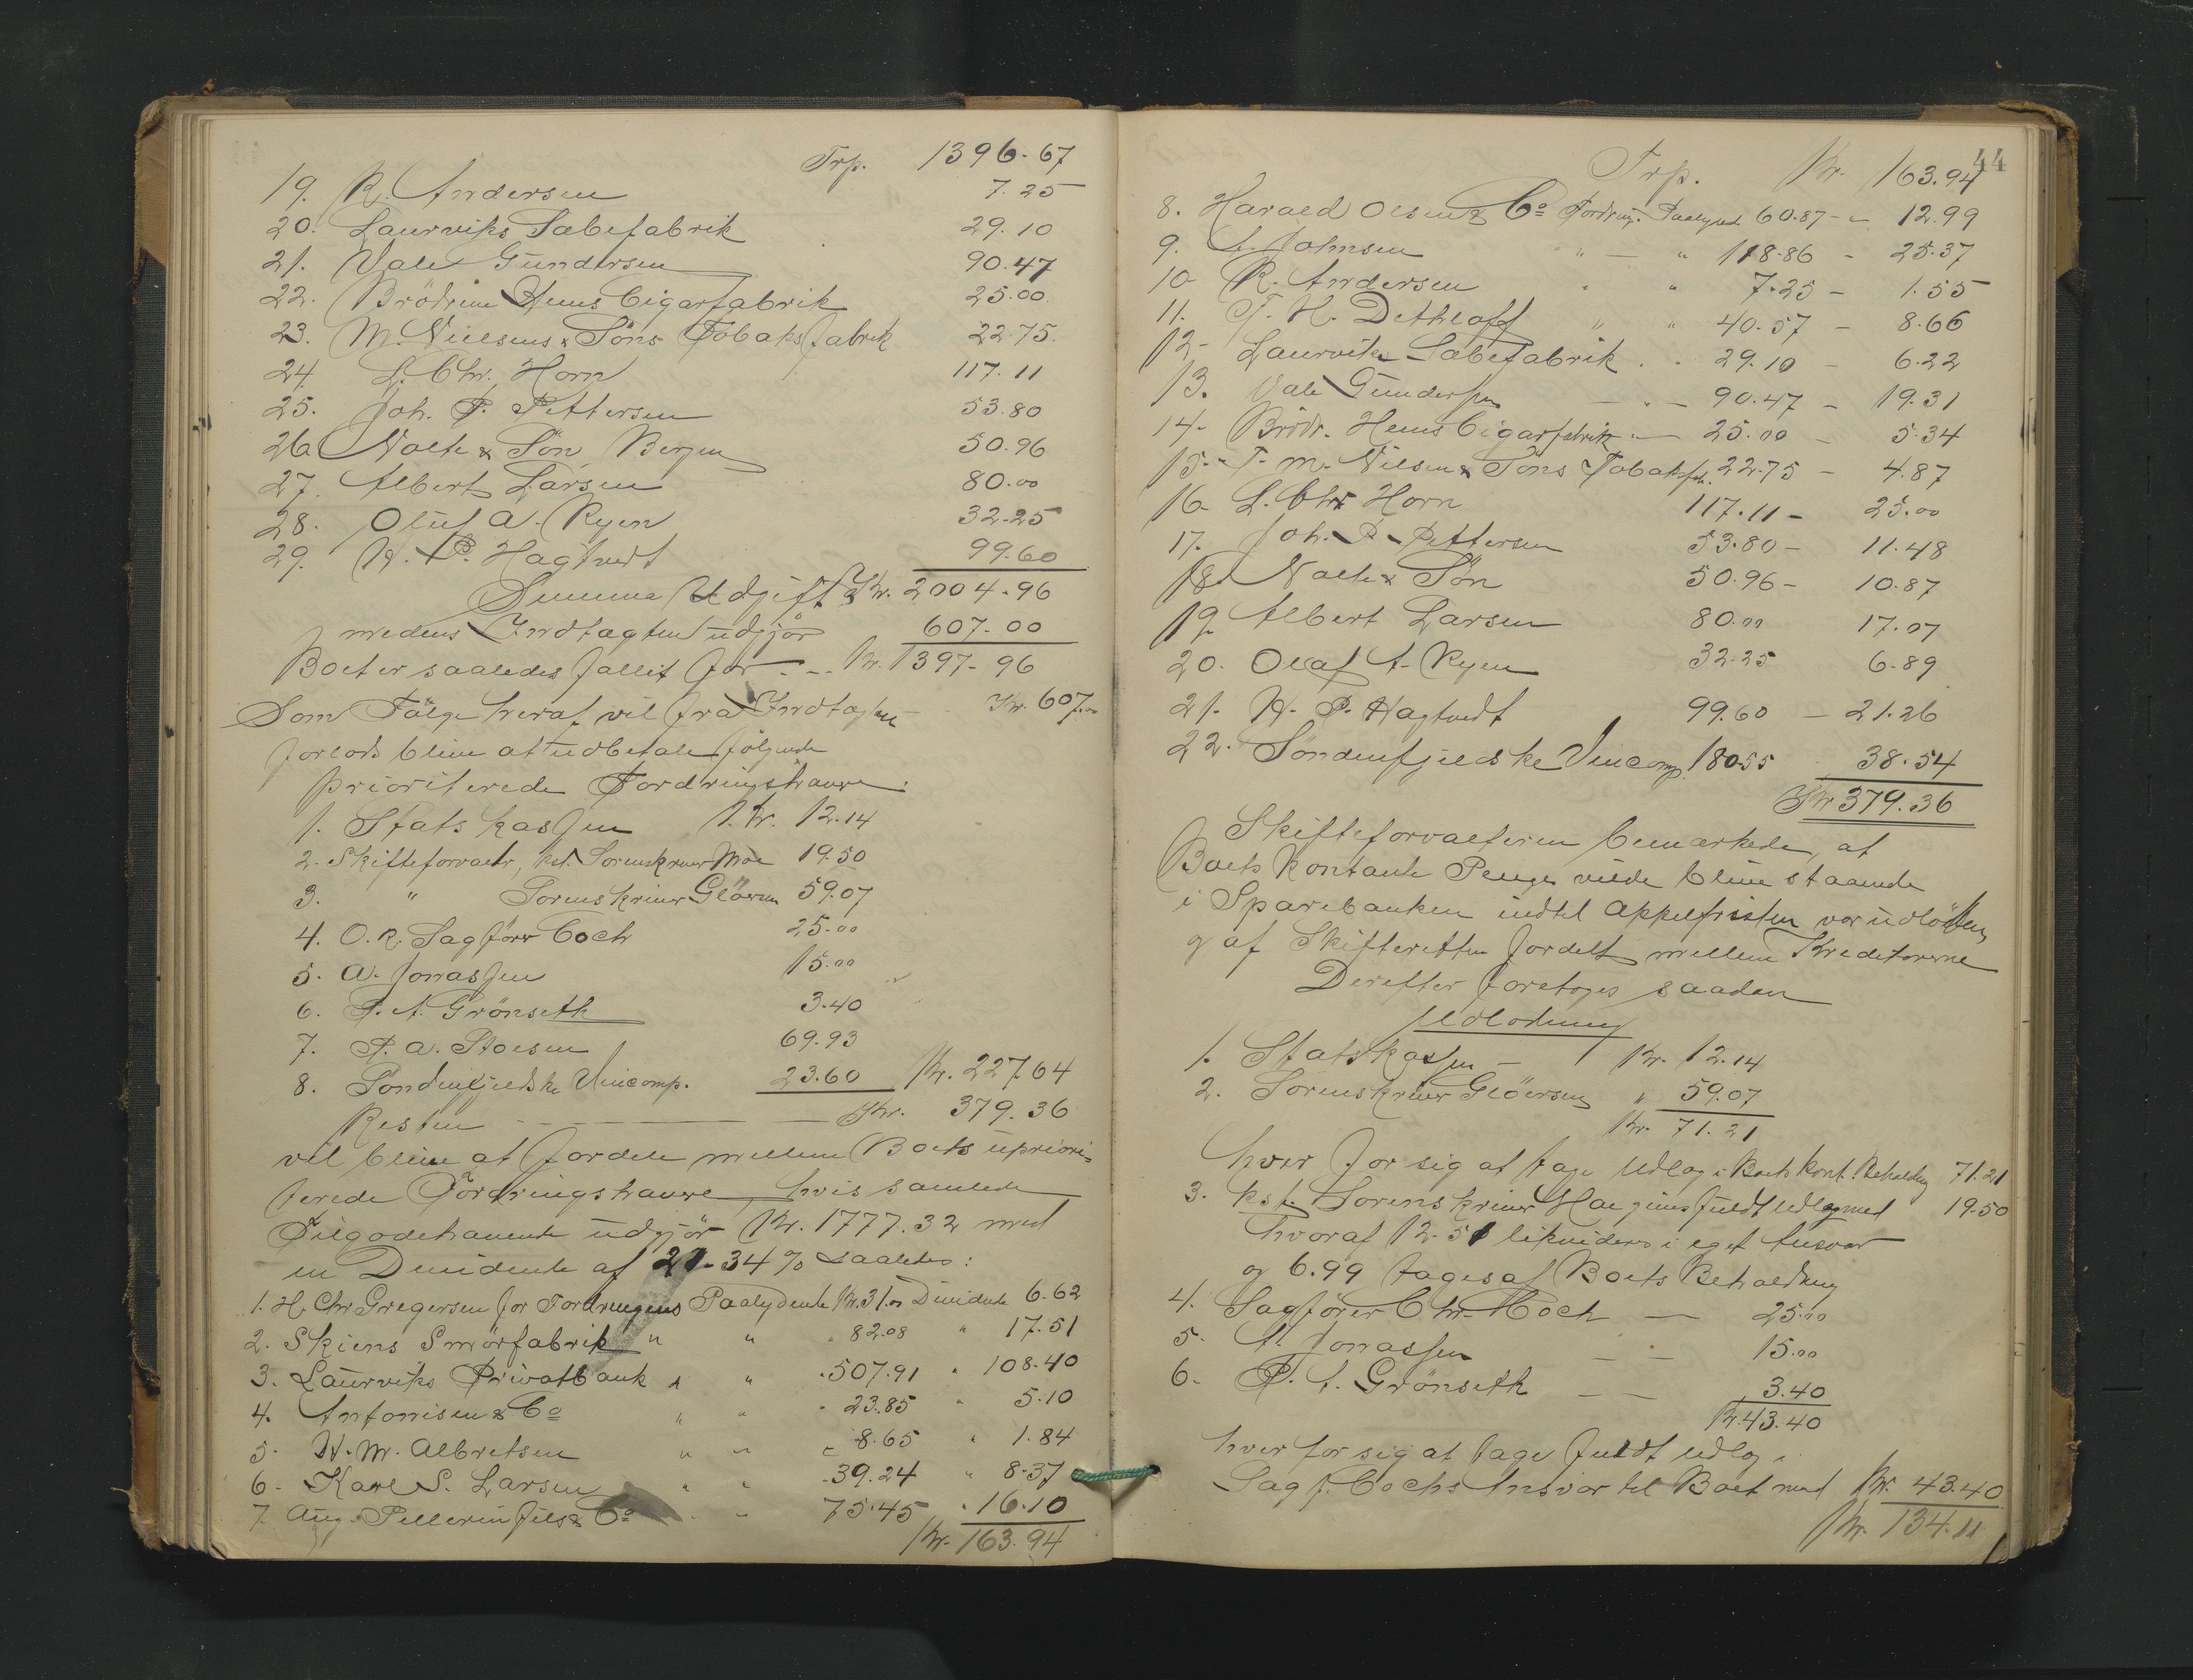 Trp. 1396.67
19. R. Andersen 7.25
20. Laurviks Sæbefabrik 29.10
21. Vale Gundersen 90.47
22. Brödrene Hems Cigarfabrik 25.00
23. M. Nielsens & Söns Tobaksfabrik 22.75
24. L. Chr. Horn 117.11
25. Joh. P. Pettersen 53.80
26. Nolte & Sön Bergen 50.96
27. Albert Larsen 80.00
28. Oluf A. Ryen 32.25
29. H. P. Hagtvedt 99.60
Summa Udgift Kr. 2004.96
medens Indtægten udgjør 607.00
Boet er saaledes fallit for - - Kr. 1397.96
Som Følge heraf vil fra Indtægten Kr. 607.00
forlods blive at udbetale følgende
prioriterede Fordringshavere:
1. Statskassen Kr. 12.14
2. Skifteforvalter, kst. Sorenskriver Moe 19.50
3. " Sorenskriver Glöersen 59.07
4. O.R. Sagfører Coch 25.00
5. A. Jonassen 15.00
6. P. A. Grönseth 3.40
7. P. A. Stoesen 69.93
8. Söndenfjeldske Vincomp. 23.60 Kr. 227.64
Resten - Kr. 379.36
vil blive at fordele mellem Boets upriori-
terede Fordringshavere, hvis samlede
Tilgodehavende udgjør Kr. 1777.32 med
en Dividende af 21.34 % saaledes:
1. H. Chr Gregersen for Fordringens Paalydende Kr. 31.00 Dividende 6.62
2. Skiens Smörfabrik " " " 82.08 " 17.51
3. Laurviks Privatbank " " " 507.91 " 108.40
4. Antonisen & Co " " " 23.85 " 5.10
5. H. M. Albretsen " " " 8.65 " 1.84
6. Karl S. Larsen " " 39.24 " 8.37
7. Aug. Pellerin fils & Co " " 75.45 " 16.10
Kr. 163.94
44
Trp. Kr. 163.94
8. Harald Olsen & Co Fordring. Paalyd. 60.87 - " 12.99
9. A. Johnsen " - " 118.86 - 25.37
10. R. Andersen " " 7.25 - 1.55
11. T. H. Dethloff " " 40.57 - 8.66
12. Laurviks Sæbefabrik . . 29.10 - 6.22
13. Vale Gundersen - " - 90.47 - 19.31
14. Brödr. Hems Cigarfabrik " - 25.00 - 5.34
15. T. M. Nielsen & Söns Tobaksfab. 22.75 - 4.87
16. L. Chr Horn 117.11 - 25.00
17. Joh. P. Pettersen 53.80 - 11.48
18. Nolte & Sön 50.96 - 10.87
19. Albert Larsen 80.00 17.07
20. Olaf A. Ryen 32.25 6.89
21. H. P. Hagtvedt 99.60 - 21.26
22. Söndenfjeldske Vincomp. 180.55 38.54
Kr. 379.36
Skifteforvalteren bemærkede, at
Boets kontante Penge vilde blive staaende
i Sparebanken indtil Appelfristen var udløben
og af Skifteretten fordelt mellem Kreditorerne
Derefter foretoges saadan
Udlodning
1. Statskassen - Kr. 12.14
2. Sorenskriver Glöersen " 59.07
Kr. 71.21
hver for sig at tage Udlæg i Boets kont. Beholdng 71.21
3. kst. Sorenskriver Moe gives fuldt Udlæg med 19.50
hvoraf 12.51 likvideres i eget Ansvar
og 6.99 tages af Boets Beholdning
4. Sagfører Chr. Coch - 25.00
5. A. Jonassen - - 15.00
6. P. A. Grönseth - - 3.40
Kr. 43.40
hver for sig at tage fuldt Udlæg i
Sagf. Cochs Ansvar til Boet med Kr. 43.40
Kr. 134.11